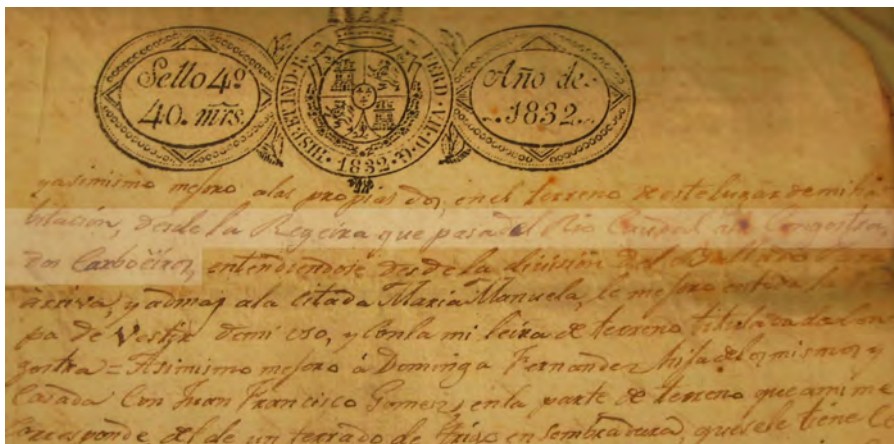 Sello 4º
40. mrs.
HISP. ET IND. R. FERD. VII. D. G. 1832
Año de
1832
y asimismo mejoro alas propias dos, en el terreno de este lugar de mi ha
bitación, desde la Regeira que pasa del Rio Caudal a la Congostra
dos Carboeiros, entendiendose desde la división del Ballado
arriva, y ademas ala citada Maria Manuela, le mejoro en toda la
pa de Vestir de mi uso, y con la mi leira de terreno titulada da Con
gostra = Asimismo mejoro à Dominga Fernandez hija de los mismos y
Casada Con Juan Francisco Gomez, en la parte de terreno que a mi me
Corresponde del de un terrado de trigo en sembradura, que se le tiene